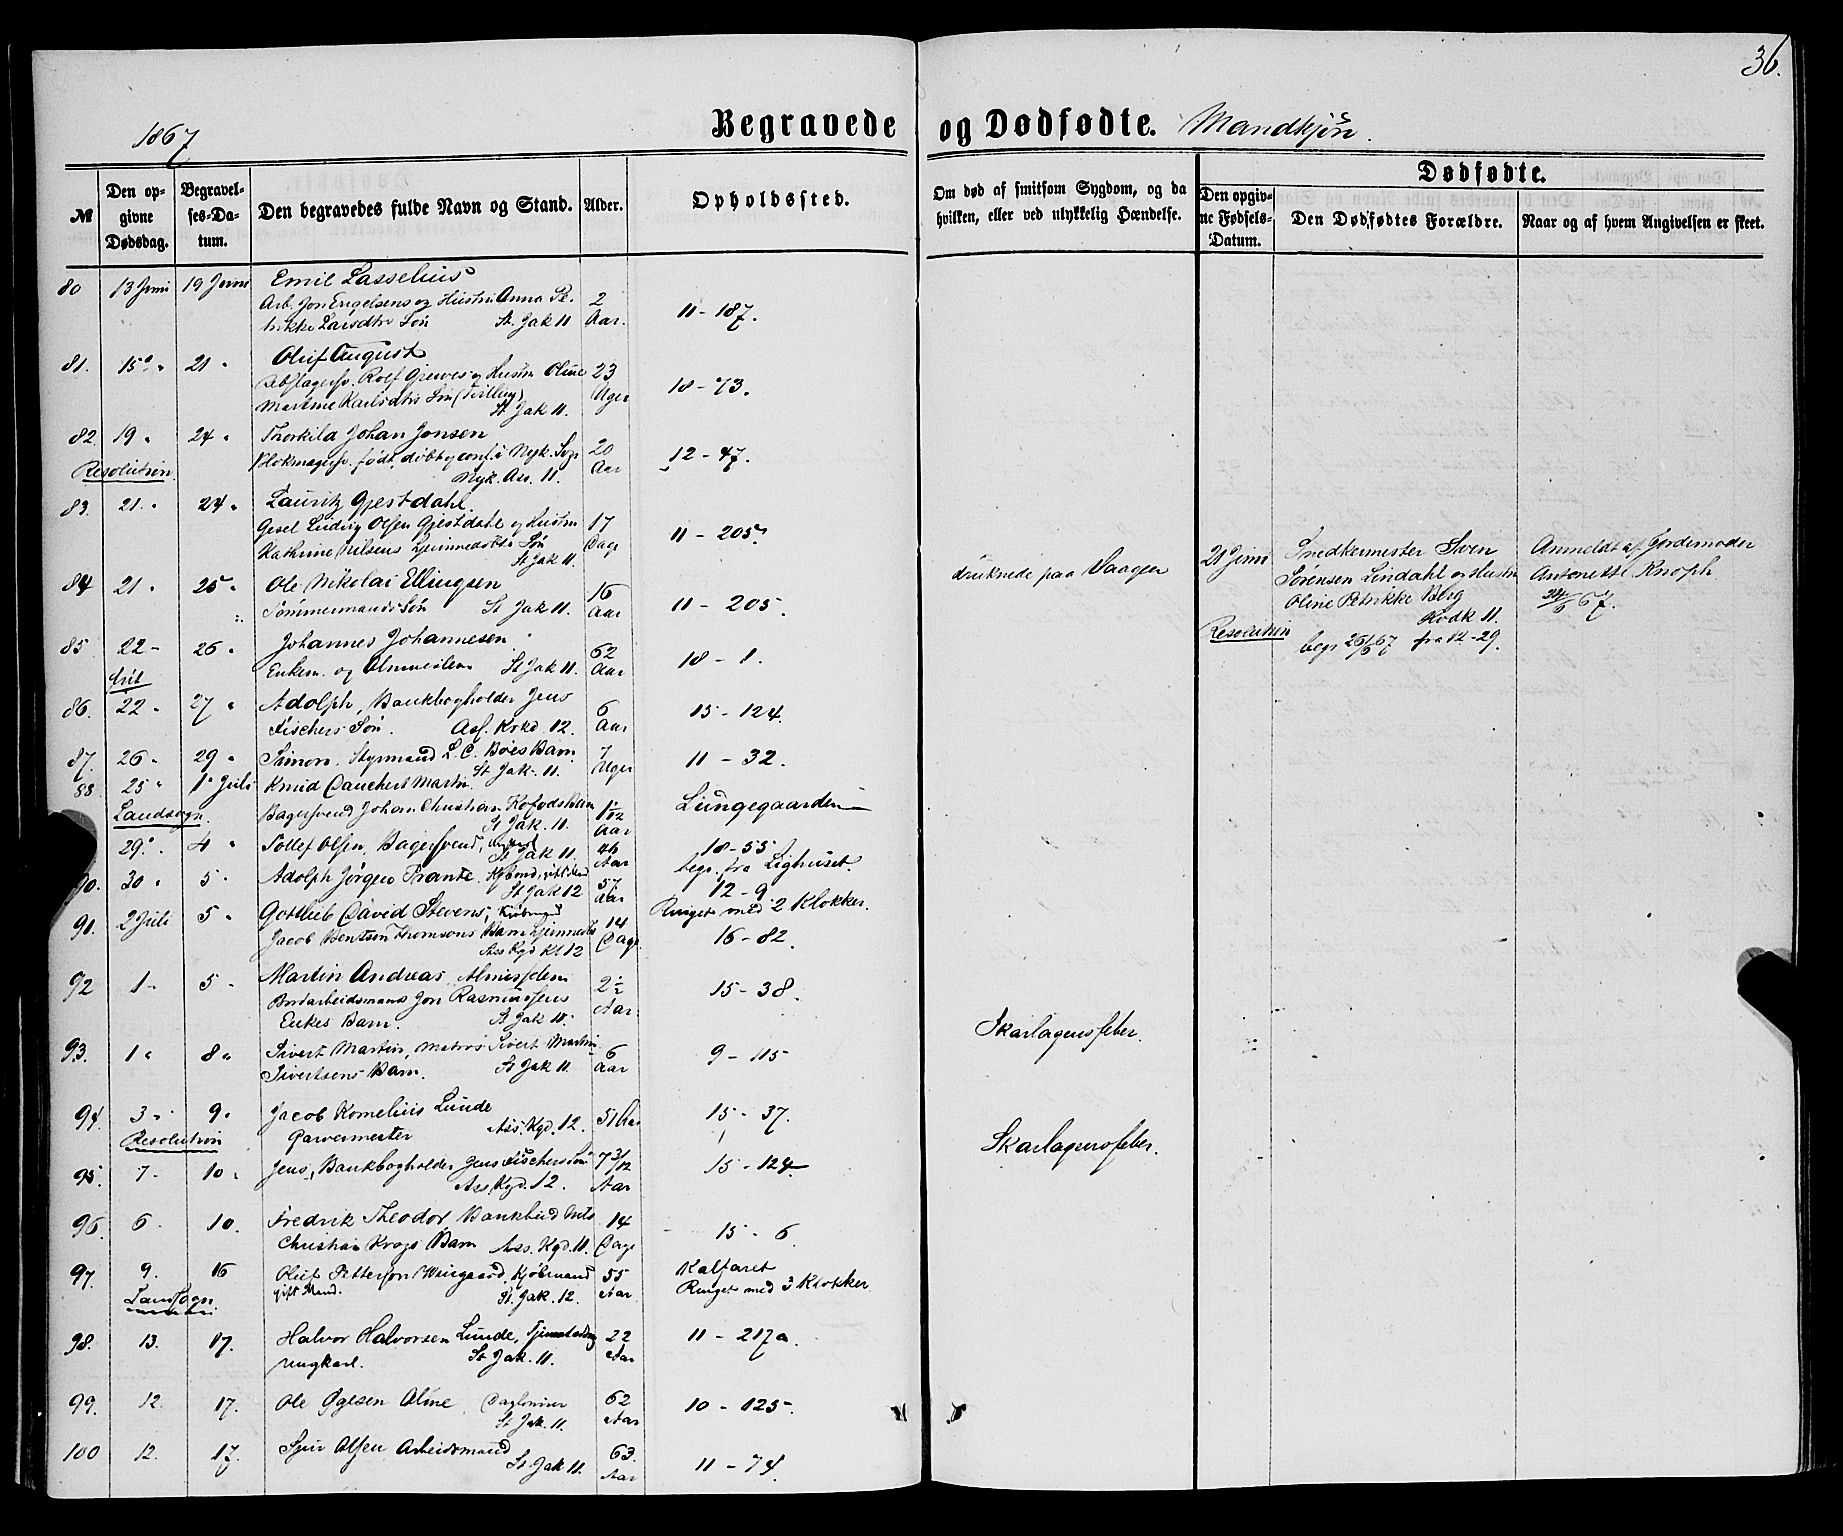 36.
1867
Begravede og Dødfødte. Mandkjøn.
№
Den opgivne Dødsdag.
Begravelses-Datum.
Den begravedes fulde Navn og Stand.
Alder.
Opholdssted.
Om død af smitsom Sygdom, og da hvilken, eller ved ulykkelig Hændelse.
Dødfødte.
Den opgivne Fødsels-Datum.
Den Dødfødtes Forældre.
Naar og af hvem Angivelsen er skeet.
80 13 Juni 19 Juni Emil Lasselius
Arb. Jon Engelsens og Hustru Anna Pe- 2
trikke Larsdtr Søn St. Jak 11 Aar. 11 - 187.
81. 15 " 21 " Oluf August
Rolf Grewes og Hustru Oline 23
Martine Karlsdtr Søn (Tvilling) Uger 18 - 73.
St Jak 11.
82. 19 " 24 " Thorkild Johan Jonsen
Resolution Blokmagersv. født, døbt og conf. i Nyk. Sogn 20 Aar 12 - 47.
Nyk. Ass. 11.
83. 21 " 24 " Lauritz Gjestdahl.
Gesel Ludvig Olsen Gjestdahl og Hustru 17
Kathrine Nilsens hjemmedøbte Søn Dage 11 - 205.
St Jak 11.
84 21 " 25 " Ole Nikolai Ellingsen 16
Tømmermands Søn St Jak 11. Aar 11 - 205.
druknede paa Vaagen
21 Juni Snedkermester Sven
Sørensen Lindahl og Hustru
Oline Petrikke Berg
Kodk 11.
Resolution begr 26/6 67 fra 12-29.
Anmeldt af Jordemoder
Antonette Knoph
24/6 67.
85 22 - 26 " Johannes Johannesen 62
fril Enkem. og Almueslem St Jak 11. Aar 18 - 1.
86. 22 " 27 " Adolph, Bankbogholder Jens 6
Fischers Søn. Ass. Krkd 12. Aar 15 - 124.
87. 26 " 29 " Simon. Styrmand L. C. Böes Barn 7
St Jak. 11. Uger 11 - 32.
88 25 " 1 Juli Knud Danckert Martin
Landsogn. Bagersvend Johan Christian Kofods Barn 1 1/12
St Jak. 11. Aar Lungegaarden
29. 4 " Tollef Olsen, Bagersvend, 46
St Jak 11 Aar 18-55
begr. fra Lighuset.
90. 30 " 5 " Adolph Jörgen Prante. 57
St Jak 12 Aar 12 - 9
Ringet med 2 Klokker.
91. 2 Juli 5 " Gottlieb David Stevens, Kjøbmand 14
Jacob Bentsen Thomsons Barn hjemmedøbt Dage 16 - 82.
Ass Kgd Kl 12
92 1 - 5 " Martin Andreas Almueslem 2 1/2
Bordarbeidsmand Jon Rasmussens Aar 15 - 38.
Enkes Barn. St Jak 11.
Skarlagensfeber.
93. 1 " 8 " Sivert Martin, Matros Sivert Martin 6
Sivertsens Barn. St Jak 11. Aar 9 - 115
94 3 " 9 " Jacob Kornelius Lunde 51 Aar
Resolution Garvermester Ass. Kgd. 12. 15 - 37.
Skarlagensfeber.
95. 7 - 10 " Jens, Bankbogholder Jens Fischers Søn 7 3/12
Ass Kgd. 12. Aar 15 - 124
96. 6 - 10. Fredrik Theodor, Bankbud Nils 14
Christian Krogs Barn Ass. Kgd. 11. Dage 15 - 6
97. 9. 16 Oluf Petterson Wingaard, Kjöbmand 55
gift Mand. St. Jak. 12. Aar Kalfaret
Landsogn Ringet med 3 Klokker
98. 13. 17. Halvor Halvorsen Lunde, 22
ungkarl. St Jak. 11. Aar 11 - 217a
99. 12. 17. Ole Øgesen Alme Daglønner 62
St Jak. 11. Aar 10 - 125.
100 12. 17. Sjur Olsen Arbeidsmand 63.
St. Jak 11. Aar 11 - 74.